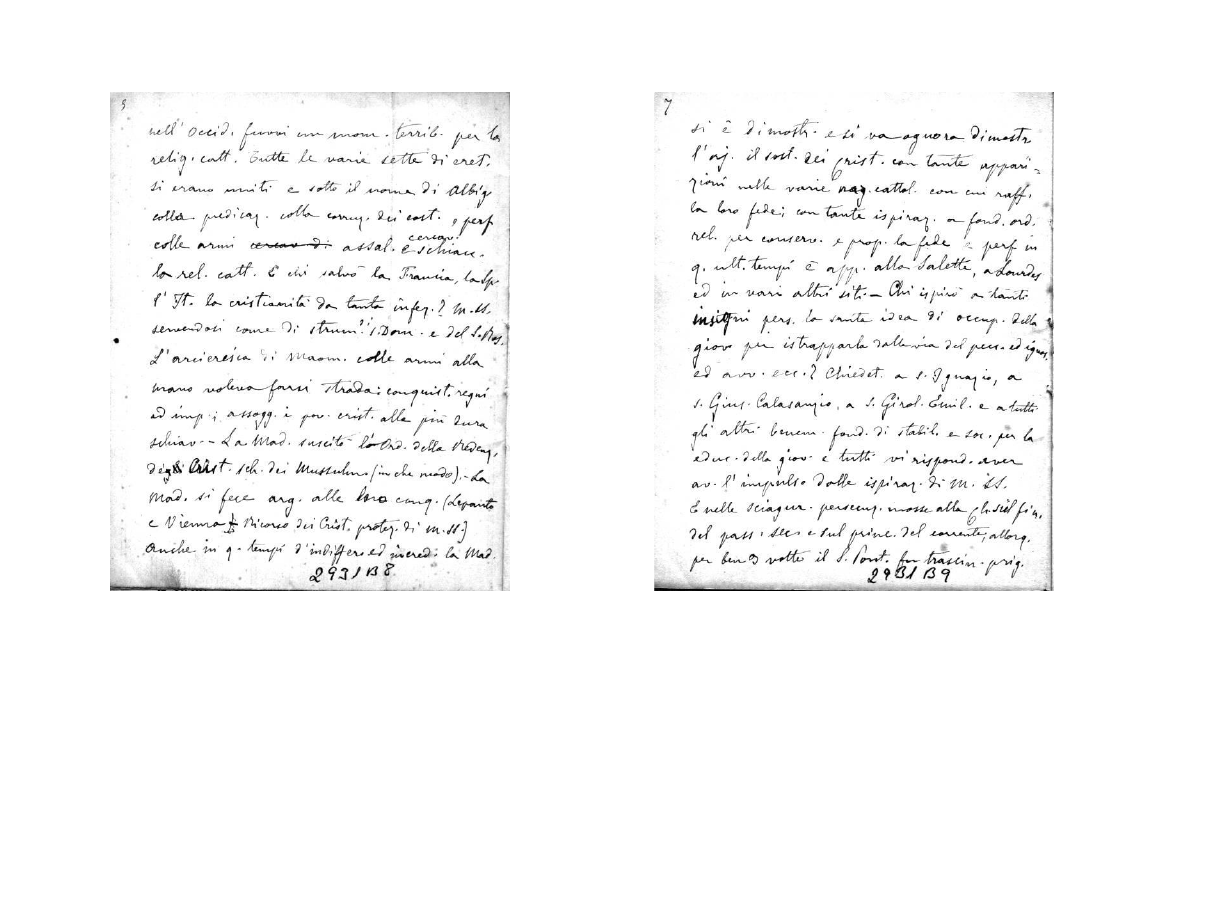 5
nell' Occid. furovi un mom. terrib. per la
relig. catt. Tutte le varie sette di eret.
si erano uniti e sotto il nome di Albig
colla predicaz. colla corruz. dei cost. e perf
cercav.
colle armi cercav di assal. e schiacc.
la rel. catt. E chi salvò la Francia, la Sp.
l' It. la cristianità da tanta infez.? M. SS.
servendosi come di strum. S. Dom. e del S. Ros.
L'arcieresia di Maom. colle armi alla
mano voleva farsi strada; conquist. regni
ed imp.; assogg. i pov. crist. alla più dura
schiav. - La Mad. suscitò l'Ord. della Redenz.
degli Crist. sch. dei Mussulm. (in che modo). - La
Mad. si fece arg. alle loro conq. (Lepanto
e Vienna Ricorso dei Crist. protez. di M. SS.)
Anche in q. tempi d'indiffer. ed incred. la Mad.
2931 B 8
7
si è dimostr. e si va ognora dimostr
l' il sost. dei Crist. con tante appari-
zioni nelle varie naz. cattol. con cui raff.
la loro fede; con tante ispiraz. a fond. ord.
rel. per conserv. e prop. la fede e perf in
q. ult. tempi è app. alla Salette, a Lourdes
ed in vari altri siti - Chi ispirò a tanti
insigni pers. la santa idea di occup. della
giov per istrapparla dalla via del pecc. ed ignor.
ed avv. ecc.? Chiedet. a S. Ignazio, a
S. Gius. Calasanzio, a S. Girol. Emil. e a tutti
gli altri benem. fond. di stabil. e soc. per la
educ. della giov. e tutti vi rispond. aver
av. l'impulso dalle ispiraz. di M. SS.
E nelle sciagur. persecuz. mosse alla Chiesa sul fin.
del pass. sec. e sul princ. del corrente, allorq.
per ben 3 volte il S. Pont. fu trascin. prig.
2931 B 9